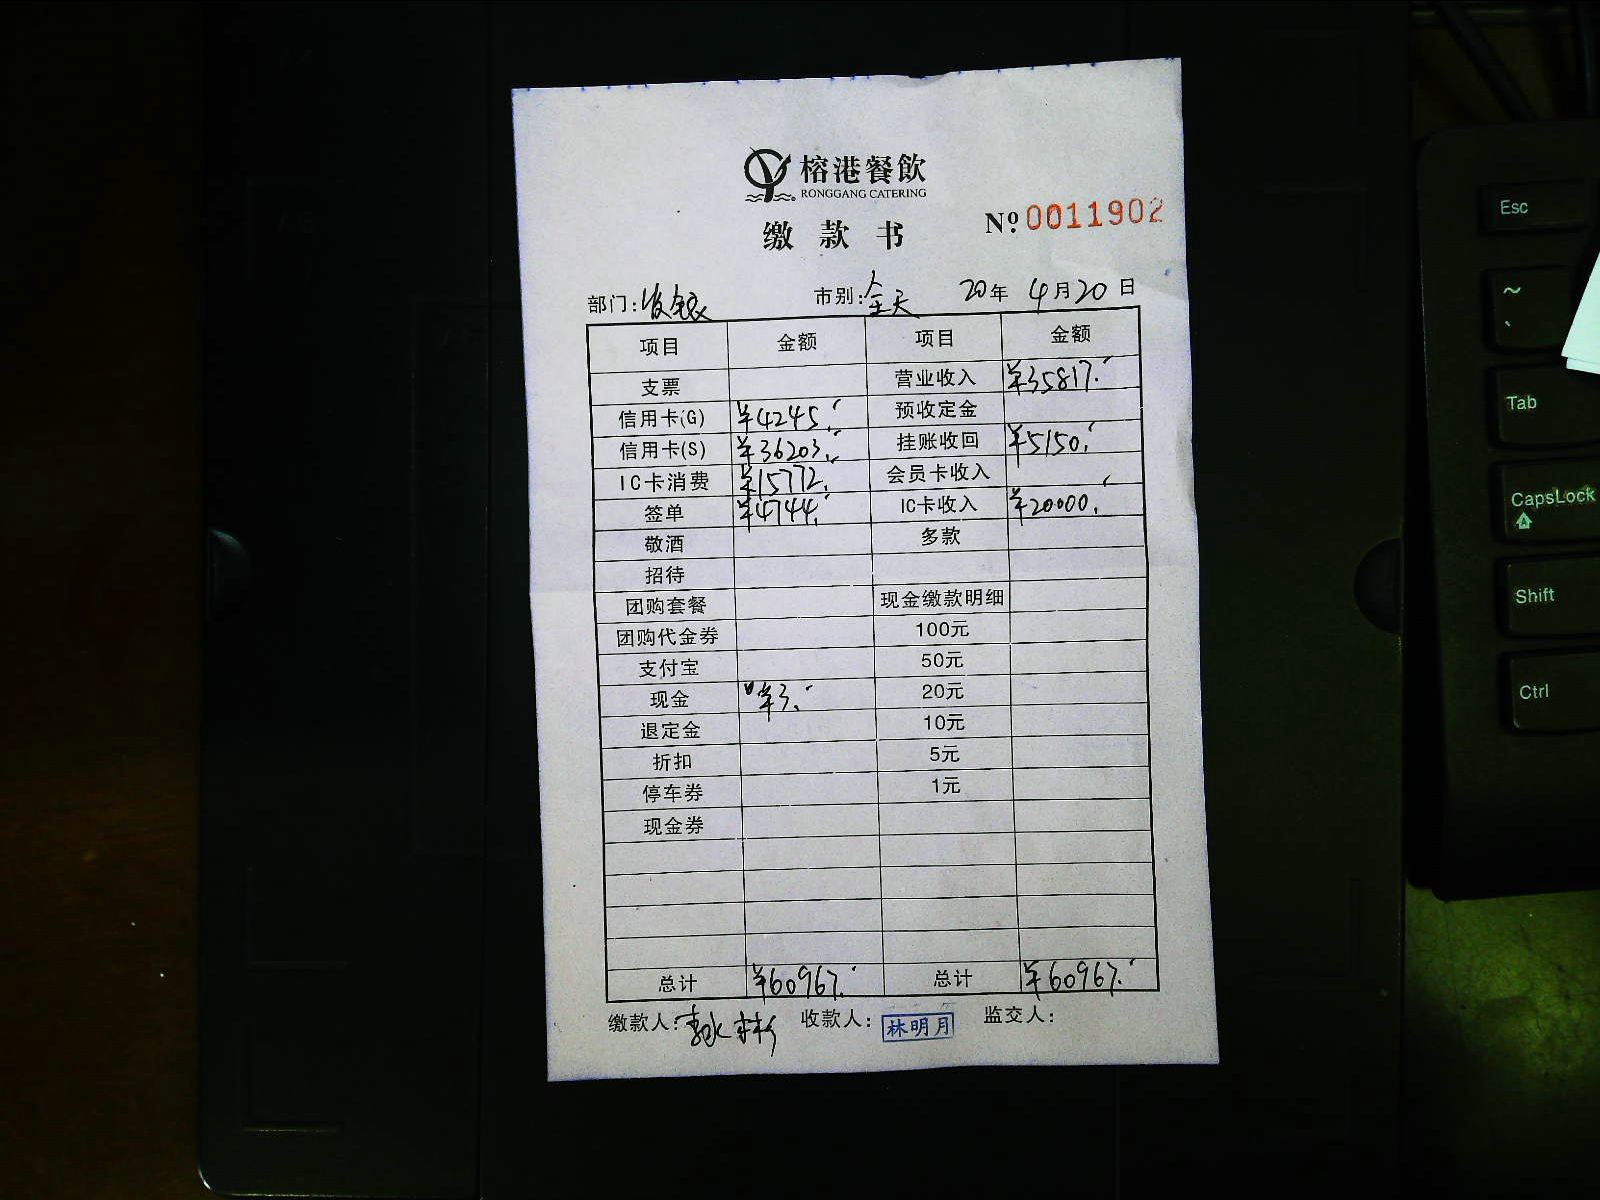 榕港餐飲
RONGGANG CATERING
缴 款 书 Nº 0011902
部门: 收银 市别: 全天 20年 4月20日
项目 金额 项目 金额
支票 营业收入 ¥35817.-
信用卡(G) ¥4245.- 预收定金
信用卡(S) ¥36203.- 挂账收回 ¥5150.-
IC卡消费 ¥15772.- 会员卡收入
签单 ¥4744.- IC卡收入 ¥20000.-
敬酒 多款
招待
团购套餐 现金缴款明细
团购代金券 100元
支付宝 50元
现金 ¥3.- 20元
退定金 10元
折扣 5元
停车券 1元
现金券
总计 ¥60967.- 总计 ¥60967.-
缴款人: 收款人: 林明月 监交人:
Esc
~
Tab
CapsLock
Shift
Ctrl